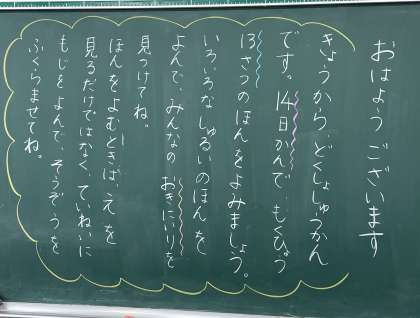 おはようございます
きょうから、どくしょしゅうかん
です。14日かんで、もくひょう
13さつのほんをよみましょう。
いろいろなしゅるいのほんを
よんで、みんなの おきにいりを
見つけてね。
ほんをよむときは、えを
見るだけではなく、ていねいに
もじをよんで、そうぞうを
ふくらませてね。